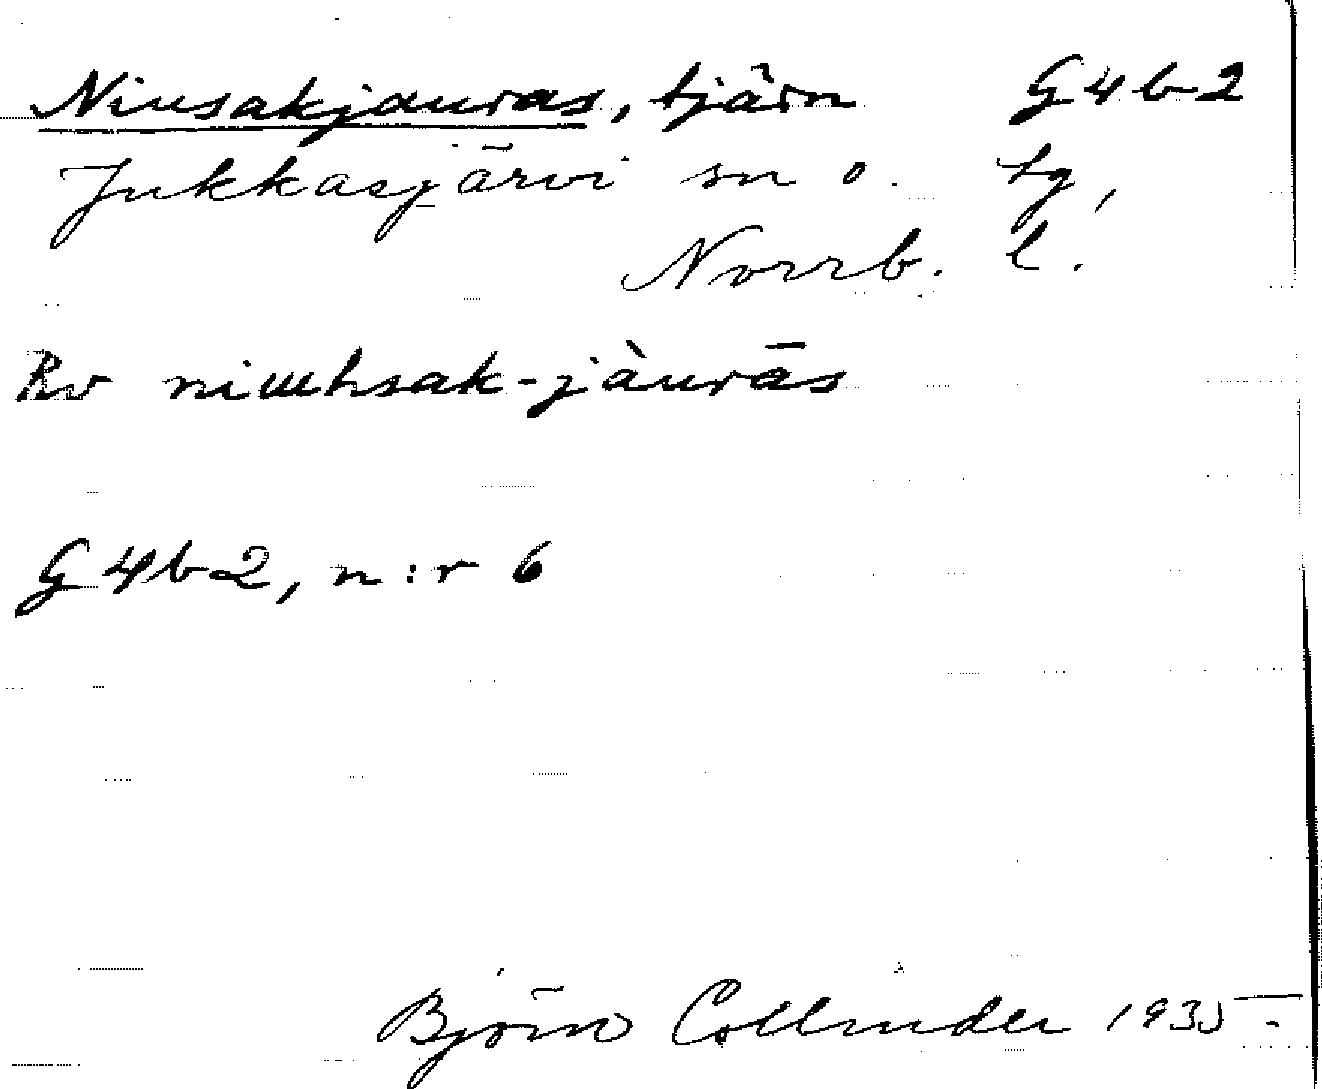 Niusakjauras, tjärn G4b2
Jukkasjärvi sn o. tg,
Norrb. l.
Rv niɯhsak-jàurās
G4b2, n:r 6
Björn Collinder 1935.